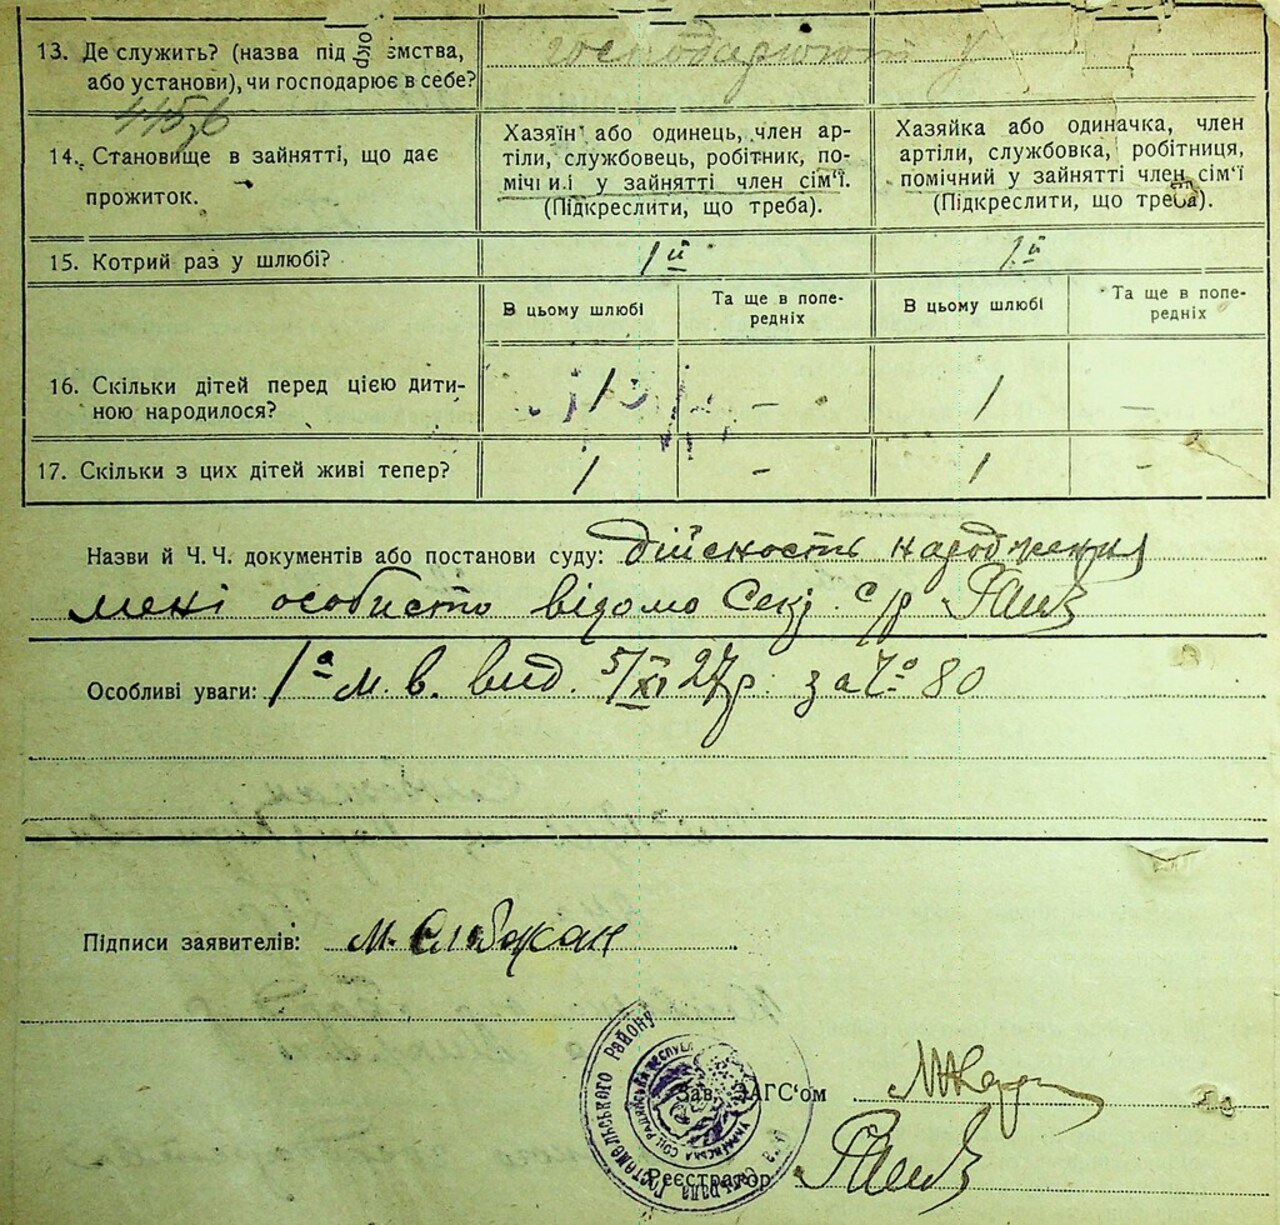 13. Де служить? (назва під ємства,
або установи), чи господарює в себе?
господарюют у
14. Становище в зайнятті, що дає
прожиток.
Хазяїн або одинець, член ар-
тіли, службовець, робітник, по-
мічний у зайнятті член сім'ї.
(Підкреслити, що треба).
Хазяйка або одиначка, член
артіли, службовка, робітниця,
помічний у зайнятті член сім'ї
(Підкреслити, що треба).
15. Котрий раз у шлюбі?
1й
1й
В цьому шлюбі
Та ще в попе-
редніх
В цьому шлюбі
Та ще в попе-
редніх
16. Скільки дітей перед цією дити-
ною народилося?
1 - 1 -
17. Скільки з цих дітей живі тепер?
1 - 1 -
Назви й Ч. Ч. документів або постанови суду: дійсность народження
мені особисто відомо Секр с/р
Особливі уваги: 1а м. в. вид. 5/XI 27р. за Чо 80
Підписи заявителів: М. Слабожан
Гостомельського Району
Українська Соц. Радянська Республ
Зав. ЗАГС'ом
Реєстратор